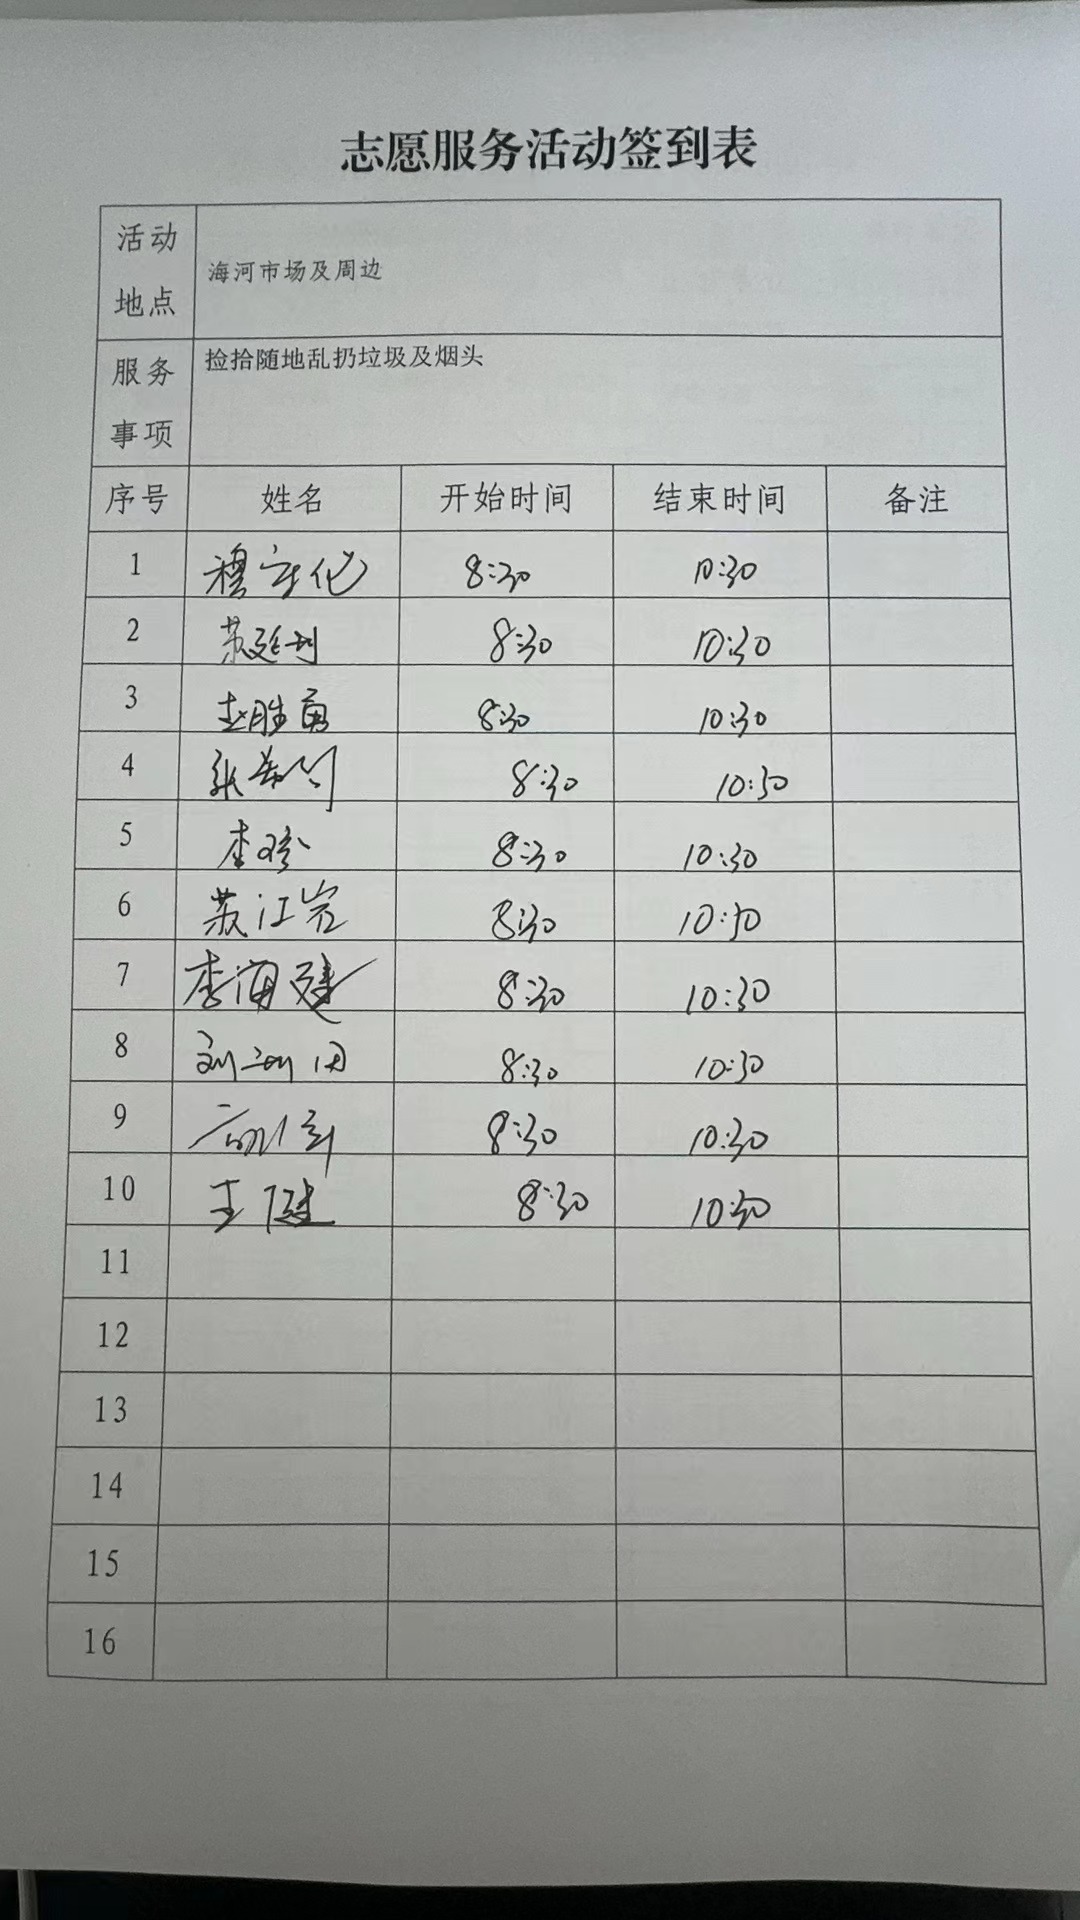 志愿服务活动签到表
活动地点 海河市场及周边
服务事项 捡拾随地乱扔垃圾及烟头
序号 姓名 开始时间 结束时间 备注
1 8:30 10:30
2 8:30 10:30
3 赵胜勇 8:30 10:30
4 8:30 10:30
5 8:30 10:30
6 苏江岩 8:30 10:30
7 李海建 8:30 10:30
8 8:30 10:30
9 8:30 10:30
10 王健 8:30 10:30
11
12
13
14
15
16